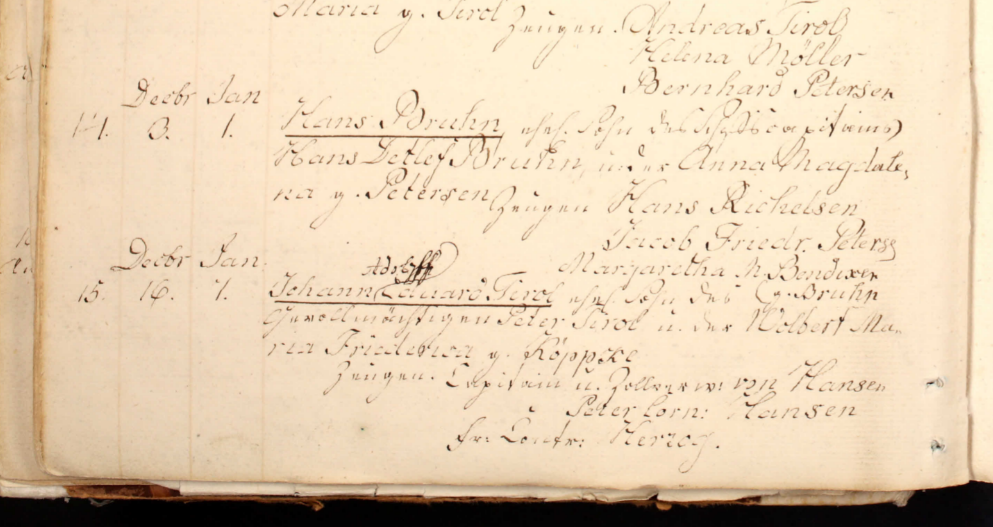 Maria g. Tirol Zeugen. Andreas Tirol
Helena Möller
Bernhard Petersen
Decbr Jan
14. 3. 1. Hans Bruhn, ehel. Sohn des Schiffscapitains
Hans Detlef Bruhn, u. der Anna Magdale,
na g. Petersen Zeugen Hans Richelsen
Jacob Friedr. Peters
Margaretha M Bendixen
Decbr Jan.
15. 16. 7. Johann Eduard Tirol ehel. Sohn des g. Bruhn
Gevollmächtigen Peter Tirol u. der Wolbert Ma-
ria Friederica g. Köppcke
Zeugen. Capitain u. von Hansen
Peter Corn: Hansen
Fr: Herzog.